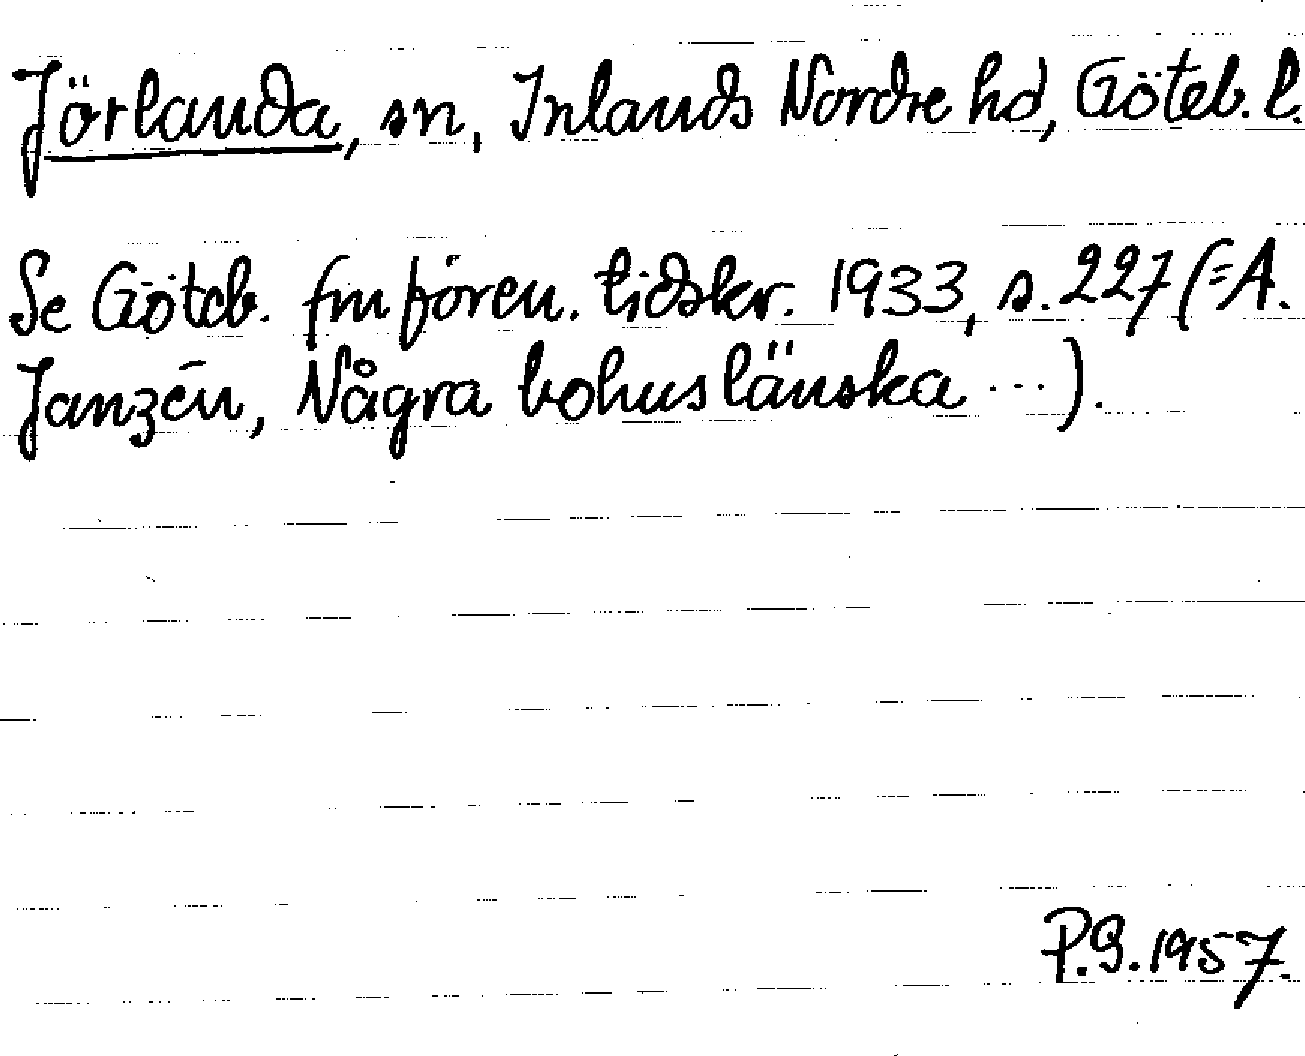 Jörlanda, sn, Inlands Nordre hd, Göteb. l.
Se Göteb. fmfören. tidskr. 1933, s. 227 (=A.
Janzén, Några bohuslänska ...).
P.G. 1957.